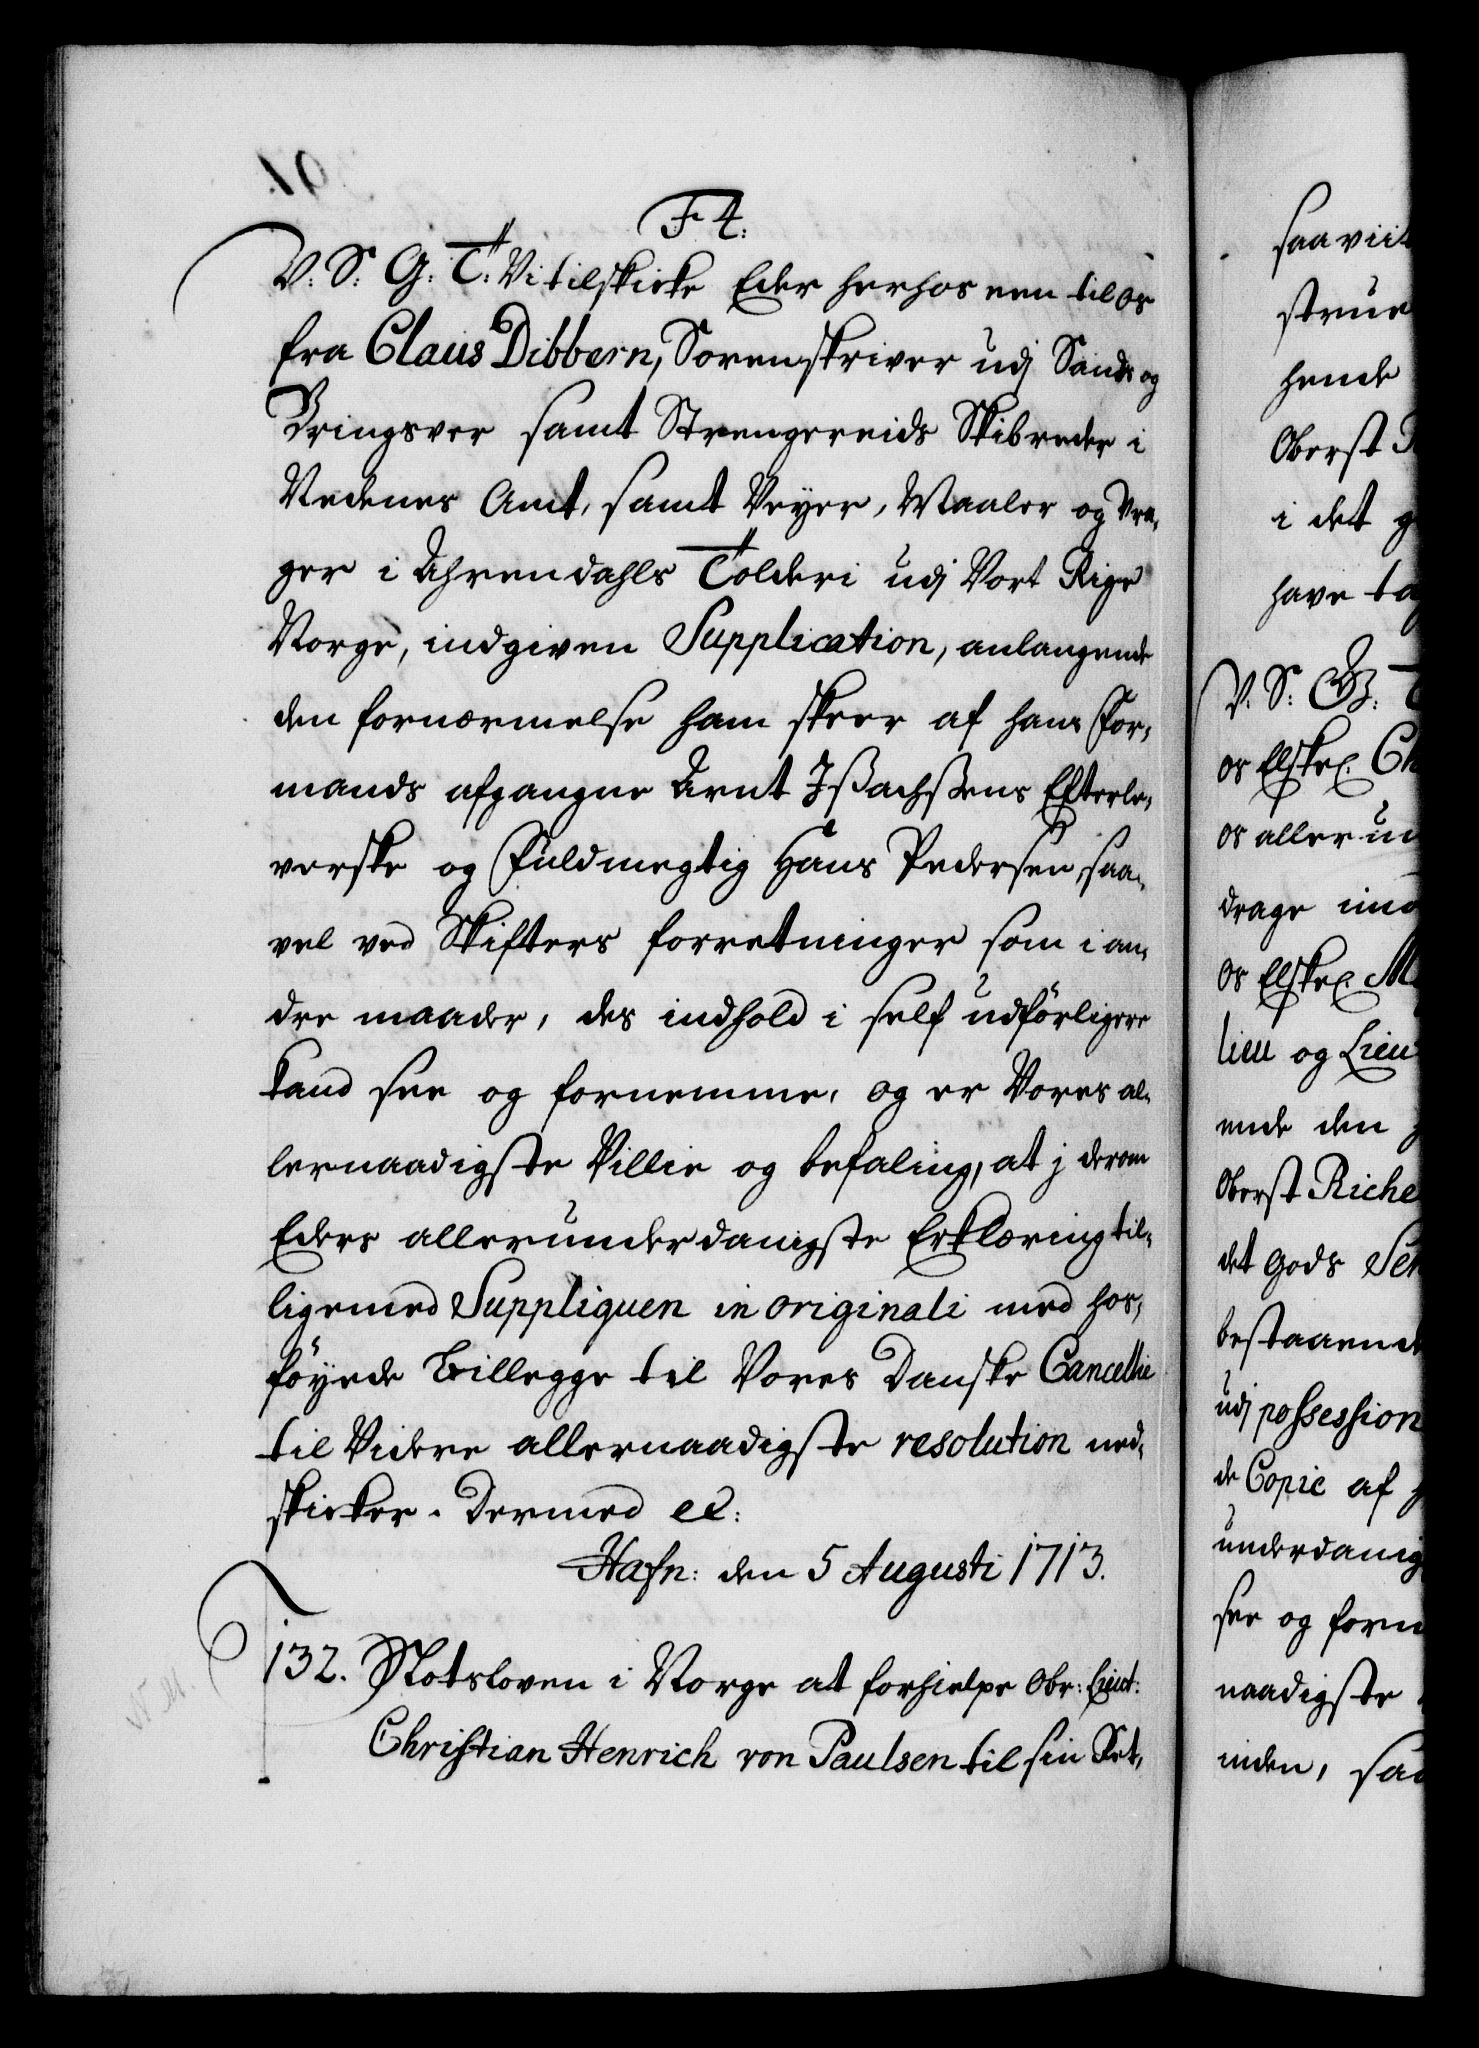 F 4.
V: S: G: T: Vi tilskicke Eder herhos een til os
fra Claus Dibbern, Sorenskriver udj Sands og
Dringsver samt Strengereids Skibreder i
Nedenes Amt, samt Veyer, Maaler og Vra-
ger i Ahrendahls Tolderi udj Vort Rige
Norge, indgiven Supplication, anlangende
den fornærmelse ham skeer af hans For-
mands afgangne Arnt Ißachßens Efterle-
verske og Fuldmegtig Hans Pedersen, saa-
vel ved Skifters forretninger som i an-
dre maader, des indhold i self udförligere
kand see og fornemme, og er Vores al-
lernaadigste Villie og befaling, at j derom
Eders allerunderdanigste Erklæring til-
ligemed Suppliquen in originali med hos-
föyede billegge til Vores Danske Cancellie
til Videre allernaadigste resolution ned-
skicker. Dermed etc:
Hafn: den 5 Augusti 1713.
132. Slotsloven i Norge at forhielpe Obr: Lieut:
Christian Henrich von Paulsen til sin Ret,
saa viit
strue
hende
Oberst
i det
have
V. S: G:
os Elskel.
os aller un
drage imo
os Elskel.
lieu og Lieu
ende den
Oberst Riche
det Gods
bestaaende
udj possession
de Copie af
underdanig
see og forn
naadigste
inden, saa